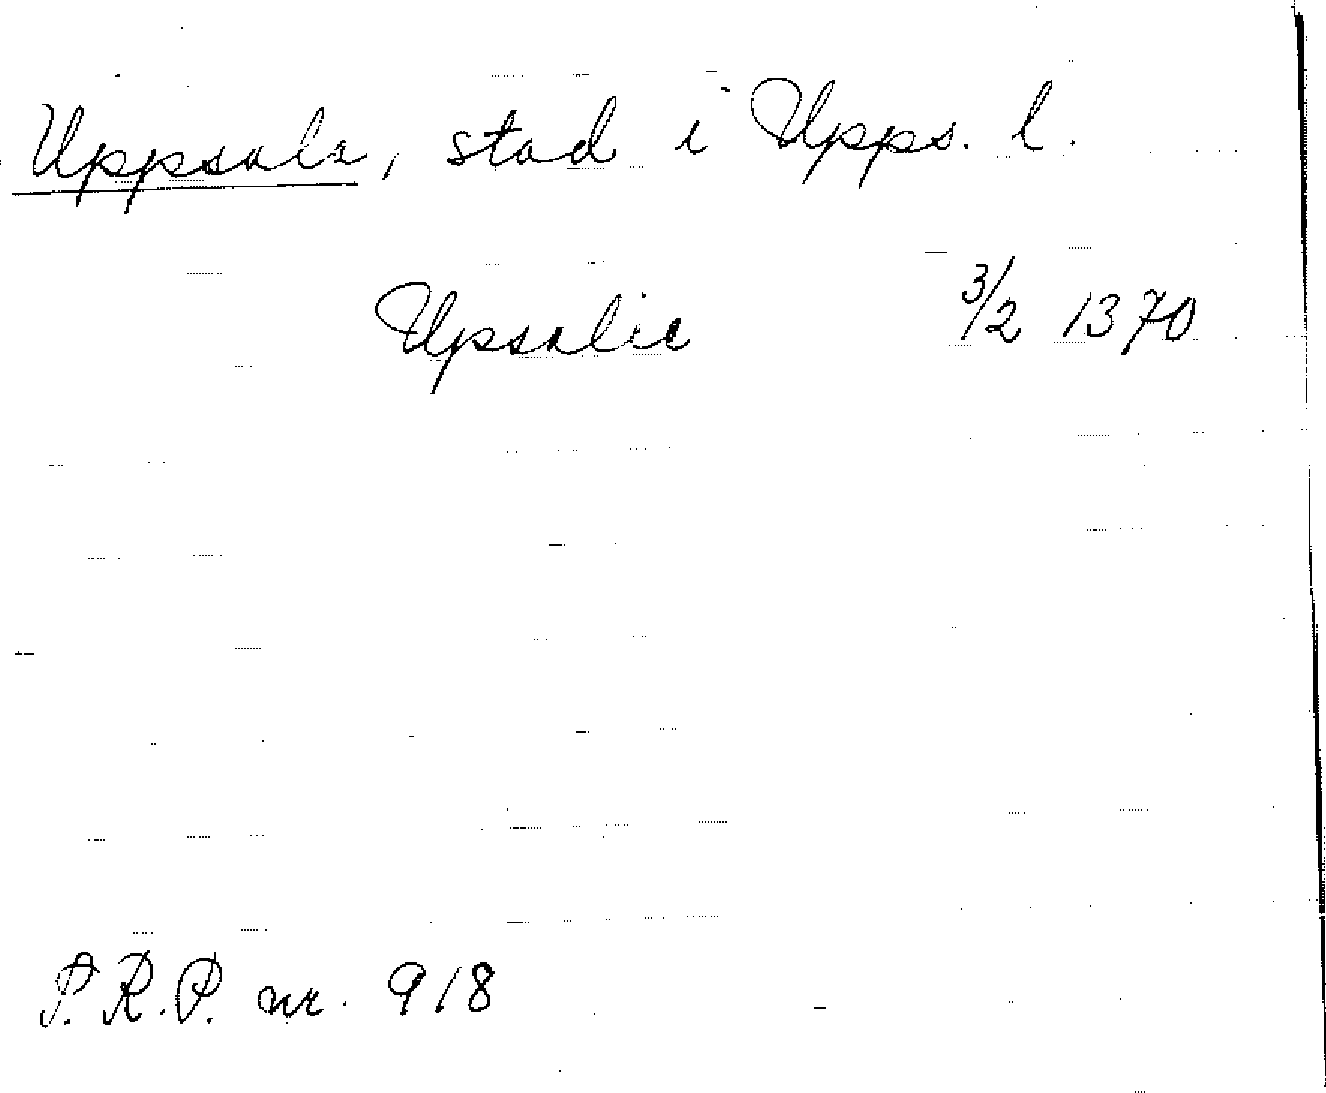 Uppsala, stad i Upps. l.
Upsalie 3/2 1370
P.R.P. nr. 918